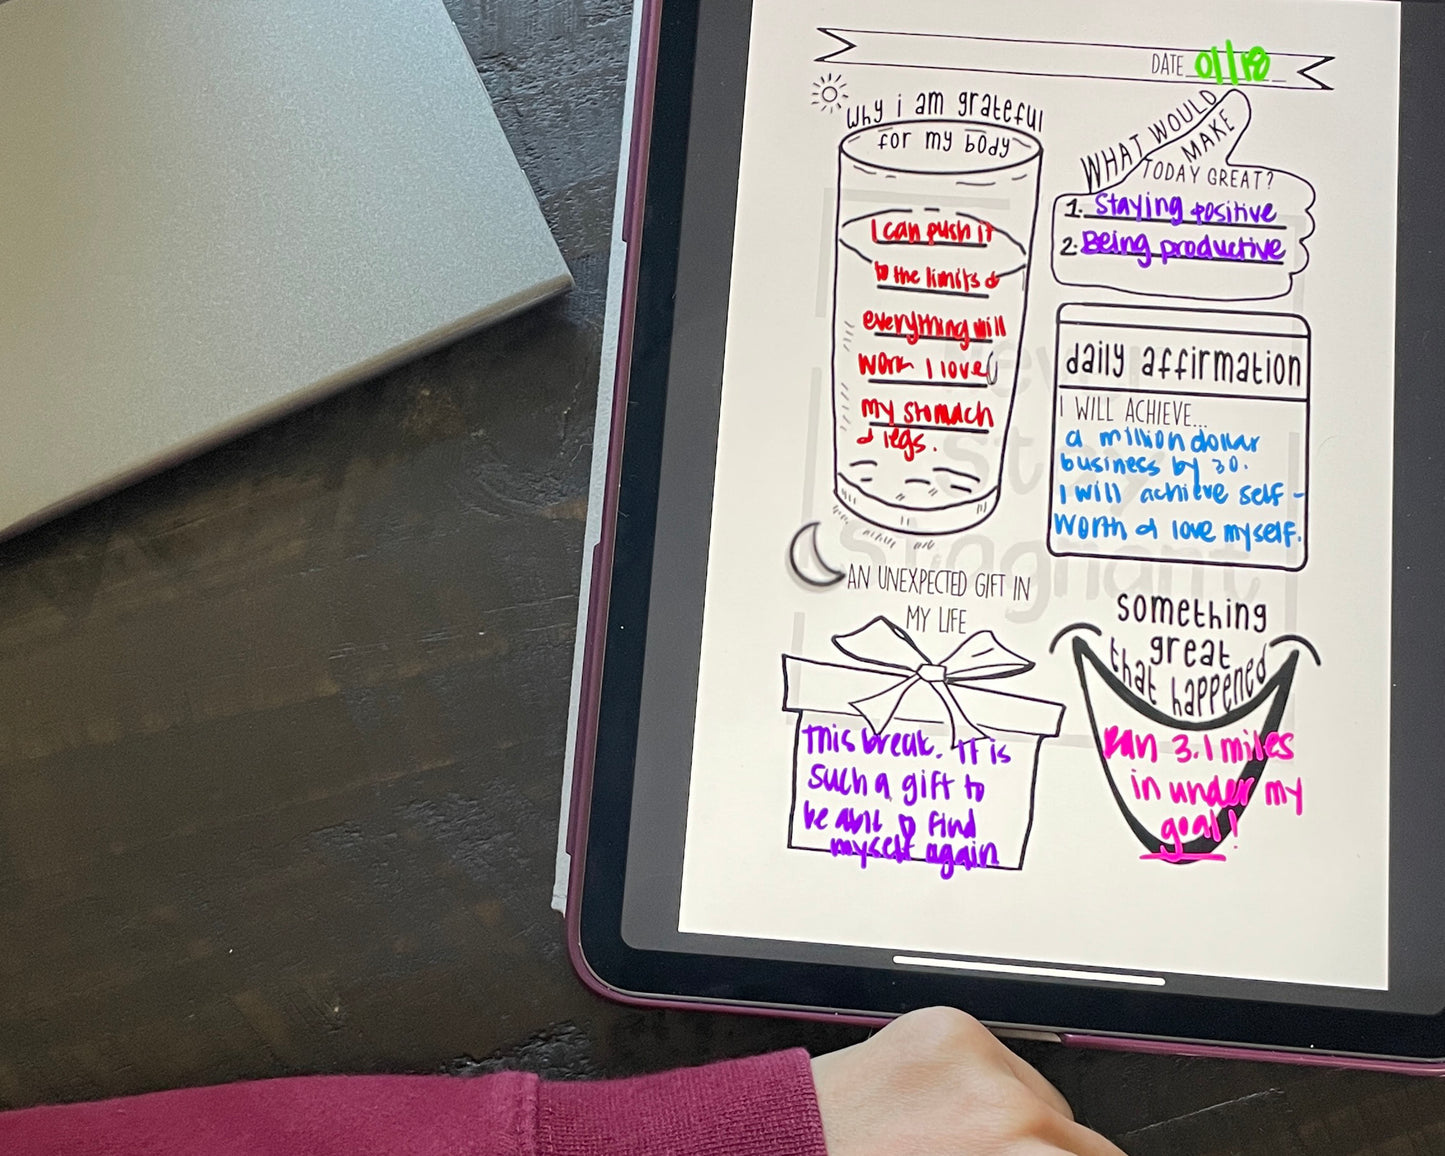 DATE 01/18
why i am grateful
for my body
I can push it
to the limits &
everything will
work I love
my stomach
& legs.
WHAT WOULD
MAKE
TODAY GREAT?
1. Staying positive
2. Being productive
daily affirmation
I WILL ACHIEVE...
a million dollar
business by 30.
I will achieve self-
worth & love myself.
AN UNEXPECTED GIFT IN
MY LIFE
This break. It is
such a gift to
be able to find
myself again
something
great
that happened
Ran 3.1 miles
in under my
goal!
never
stay
stagnant